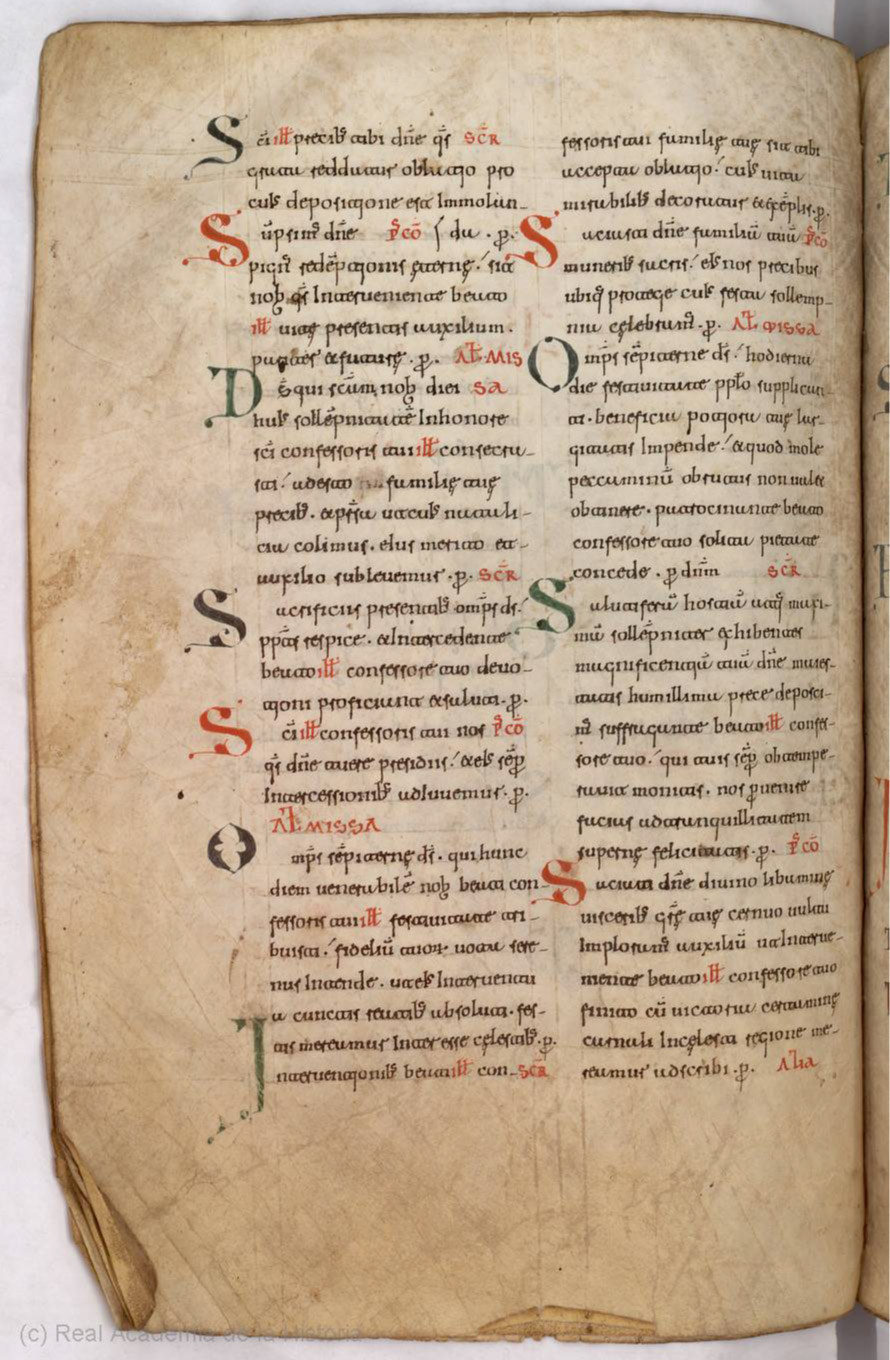 Sci̅ ill̅ precib; tibi dn̅e qs̅ SCR̅
grata reddatur oblatio pro
cui; depositione est Immolan-
Su̅psim; dn̅e PCO̅ / da . p.
pign̅ rede̅ptionis eterne / sit
nob; qs̅ Interueniente beato
ill̅ uite presentis auxilium .
& future . p. AL̅ MIS
D̅s qui scm̅ nob; diei SA
hui; solle̅pnitate̅ Inhonore
sci̅ confessoris tui ill̅ consecra-
sti / adesto familie tue
precib; . & pr̅sta ut cui; natali-
cia colimus . eius merito et-
auxilio subleuemur . p. SCR̅
Sacrificiis presentib; omp̅s ds̅ /
pp̅as respice . & Intercedente
beato ill̅ confessore tuo deuo-
tioni proficiant & saluti . p.
Sci̅ ill̅ confessoris tui nos PCO̅
qs̅ dn̅e tuere presidiis / & ei; se̅p
Intercessionib; adiuuemur . p.
AL̅ MISSA
Omp̅s se̅piterne ds̅ . qui hunc
diem uenerabile̅ nob; beati con-
fessoris tui ill̅ festiuitate tri-
buisti / fideliu̅ tuor; uota sere-
nus Intende . ut ei; Interuentu
a cunctis reatib; absoluti . fes-
tis mereamur Interesse celestib; . p.
Interuentionib; beati ill̅ con- SCR̅
fessoris tui familie tue sit tibi
accepta oblatio / cui; uita
mirabilib; decoratur & exe̅plis . p.
Satiasti dn̅e familia̅ tua̅ PCO̅
munerib; sacris / ei; nos precibus
ubiq; protege cui; festa sollemp-
nia celebram; . p. AL̅ MISSA
Omp̅s se̅piterne ds̅ / hodierna
die festiuitate pp̅lo supplican-
ti . beneficia potiora tue lar-
gitatis Impende / & quod mole
peccaminu̅ obstatis non ualet
obtinere . patrocinante beato
confessore tuo solita pietate
concede . p dn̅m SCR̅
Salutifera̅ hostia̅ utiq; maxi-
ma̅ solle̅pniter exhibentes
magnificentia̅ tua̅ dn̅e maies-
tatis humillima prece deposci-
m; suffragante beato ill̅ confes-
sore tuo / qui tuis se̅p obtempe-
rauit monitis . nos peruenire
facias ad tranquillitatem
superne felicitatis . p. PCO̅
Satiati dn̅e diuino libamine
uiscerib; gr̅e tue cernuo uultu
Imploram; auxiliu̅ ut Interue-
niente beato ill̅ confessore tuo
finito cu̅ uictoria certamine
carnali Incelesti regione me-
reamur adscribi . p. ALIA
(c) Real Academia de la Historia